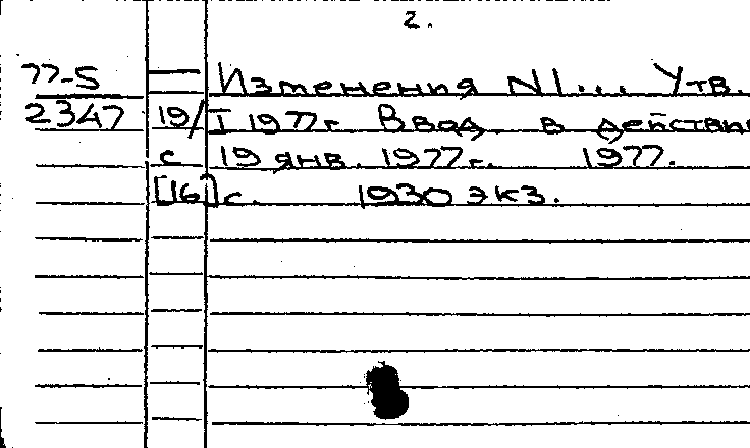 2.
77-5 — Изменения N1... Утв.
2347 19/I 1977г Ввод. в действи
с 19 янв. 1977г. 1977.
[16]с. 1930 экз.